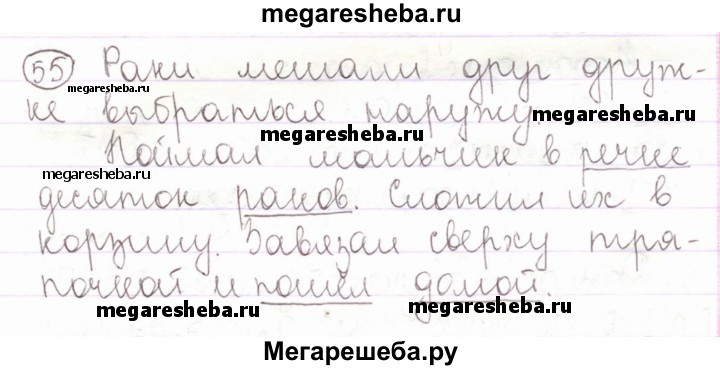 megaresheba.ru
55 Раки мешали друг друж-
megaresheba.ru
ке выбраться наружу.
megaresheba.ru
Поймал мальчик в речке
megaresheba.ru
десяток раков. Сложил их в
корзину. Завязал сверху тря-
почкой и пошёл домой.
megaresheba.ru
megaresheba.ru
Мегарешеба.ру